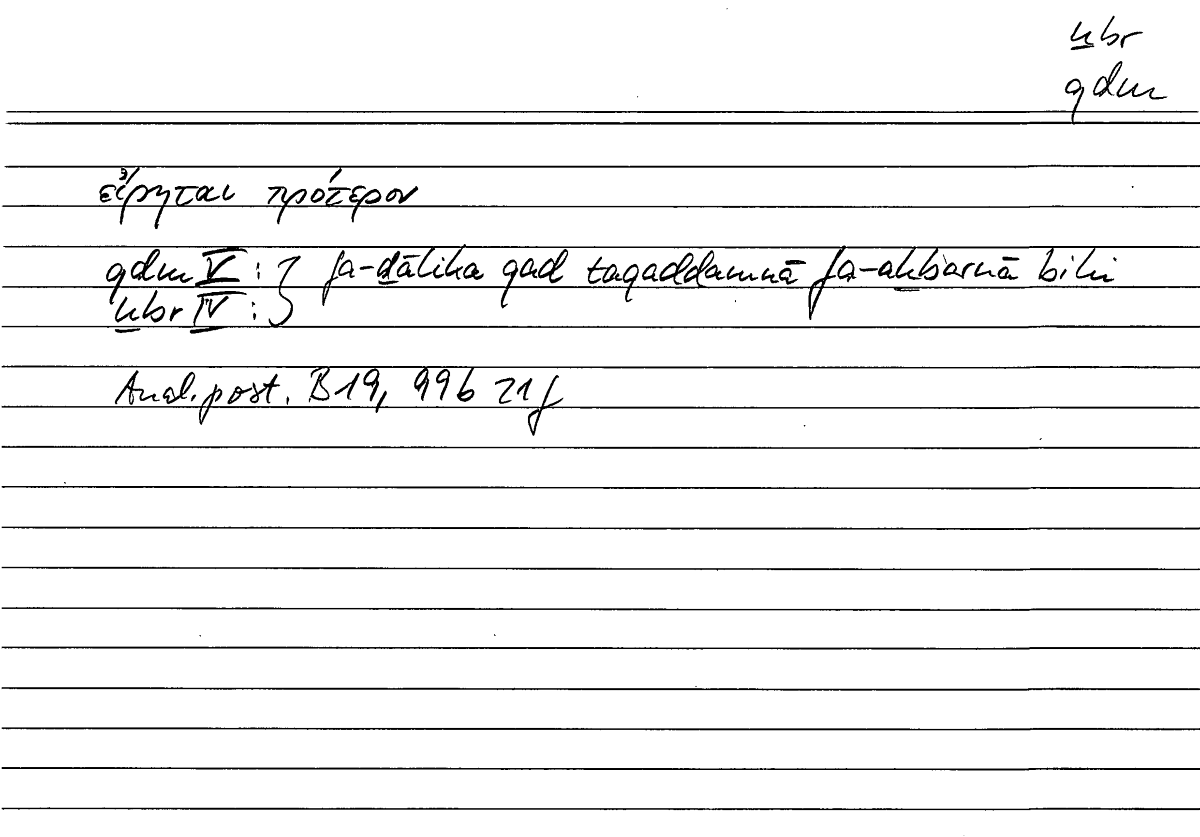 ḫbr
qdm
εἴρηται πρότερον
qdm V : } fa-ḏālika qad taqaddamnā fa-aḫbarnā bihī
ḫbr IV : }
Anal. post. B 19, 99b 21 f